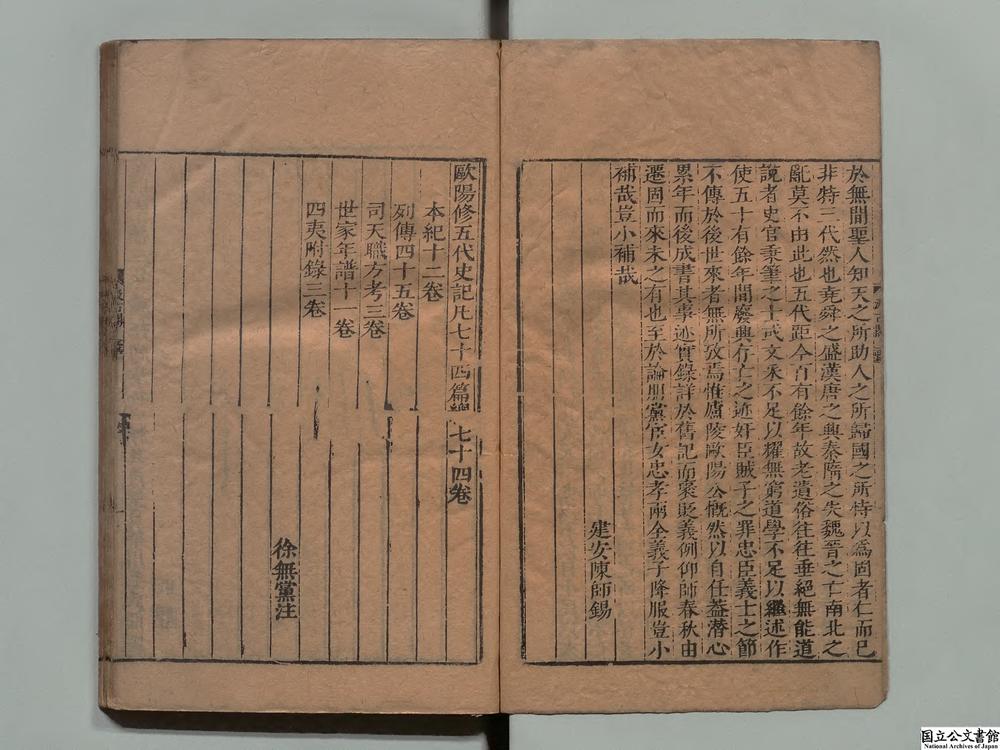 於無間聖人知天之所助人之所歸國之所恃以爲固者仁而已
非特三代然也堯舜之盛漢唐之興秦隋之失魏晉之亡南北之
亂莫不由此也五代距今百有餘年故老遺俗往往垂絕無能道
說者史官秉筆之士或文采不足以耀無窮道學不足以繼述作
使五十有餘年間廢興存亡之迹奸臣賊子之罪忠臣義士之節
不傳於後世來者無所攷焉惟廬陵歐陽公慨然以自任蓋潜心
累年而後成書其事迹實錄詳於舊記而褒貶義例仰師春秋由
遷固而來未之有也至於論朋黨宦女忠孝兩全義子降服豈小
補哉豈小補哉
建安陳師錫
歐陽修五代史記凡七十四篇總七十四卷
本紀十二卷
列傳四十五卷
司天職方考三卷
世家年譜十一卷
四夷附錄三卷
徐無黨注
国立公文書館
National Archives of Japan